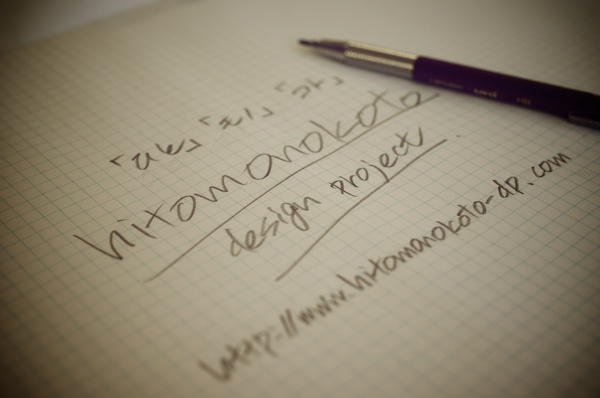 「ひと」「モノ」「コト」
hitomonokoto
design project
http://www.hitomonokoto-dp.com